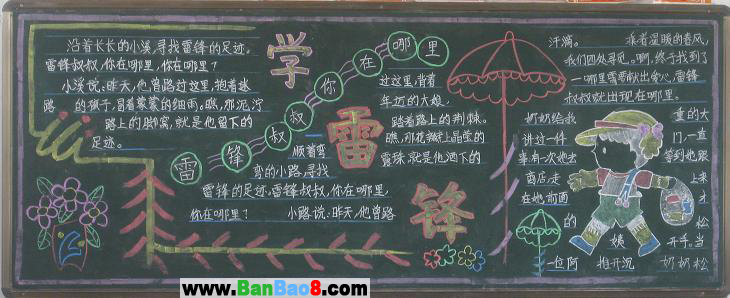 学
雷
锋
雷锋叔叔你在哪里
沿着长长的小溪,寻找雷锋的足迹。
雷锋叔叔,你在哪里,你在哪里?
小溪说:昨天,他曾路过这里,抱着迷
路的孩子,冒着蒙蒙的细雨。瞧,那泥泞
路上的脚窝,就是他留下的
足迹。
顺着弯
弯的小路,寻找
雷锋的足迹,雷锋叔叔,你在哪里,
你在哪里?小路说:昨天,他曾路
过这里,背着
年迈的大娘,
踏着路上的荆棘。
瞧,那花瓣上晶莹的
露珠,就是他洒下的
汗滴。乘着温暖的春风,
我们四处寻觅。啊,终于找到了
—哪里需要献出爱心,雷锋
叔叔就出现在哪里。
奶奶给我
讲过一件
事:有一次她去
商店,走
在她前面
的姨
一位阿推开沉
重的大
门,一直
等到她跟
上来才
松开手。当
奶奶松
www.BanBao8.com